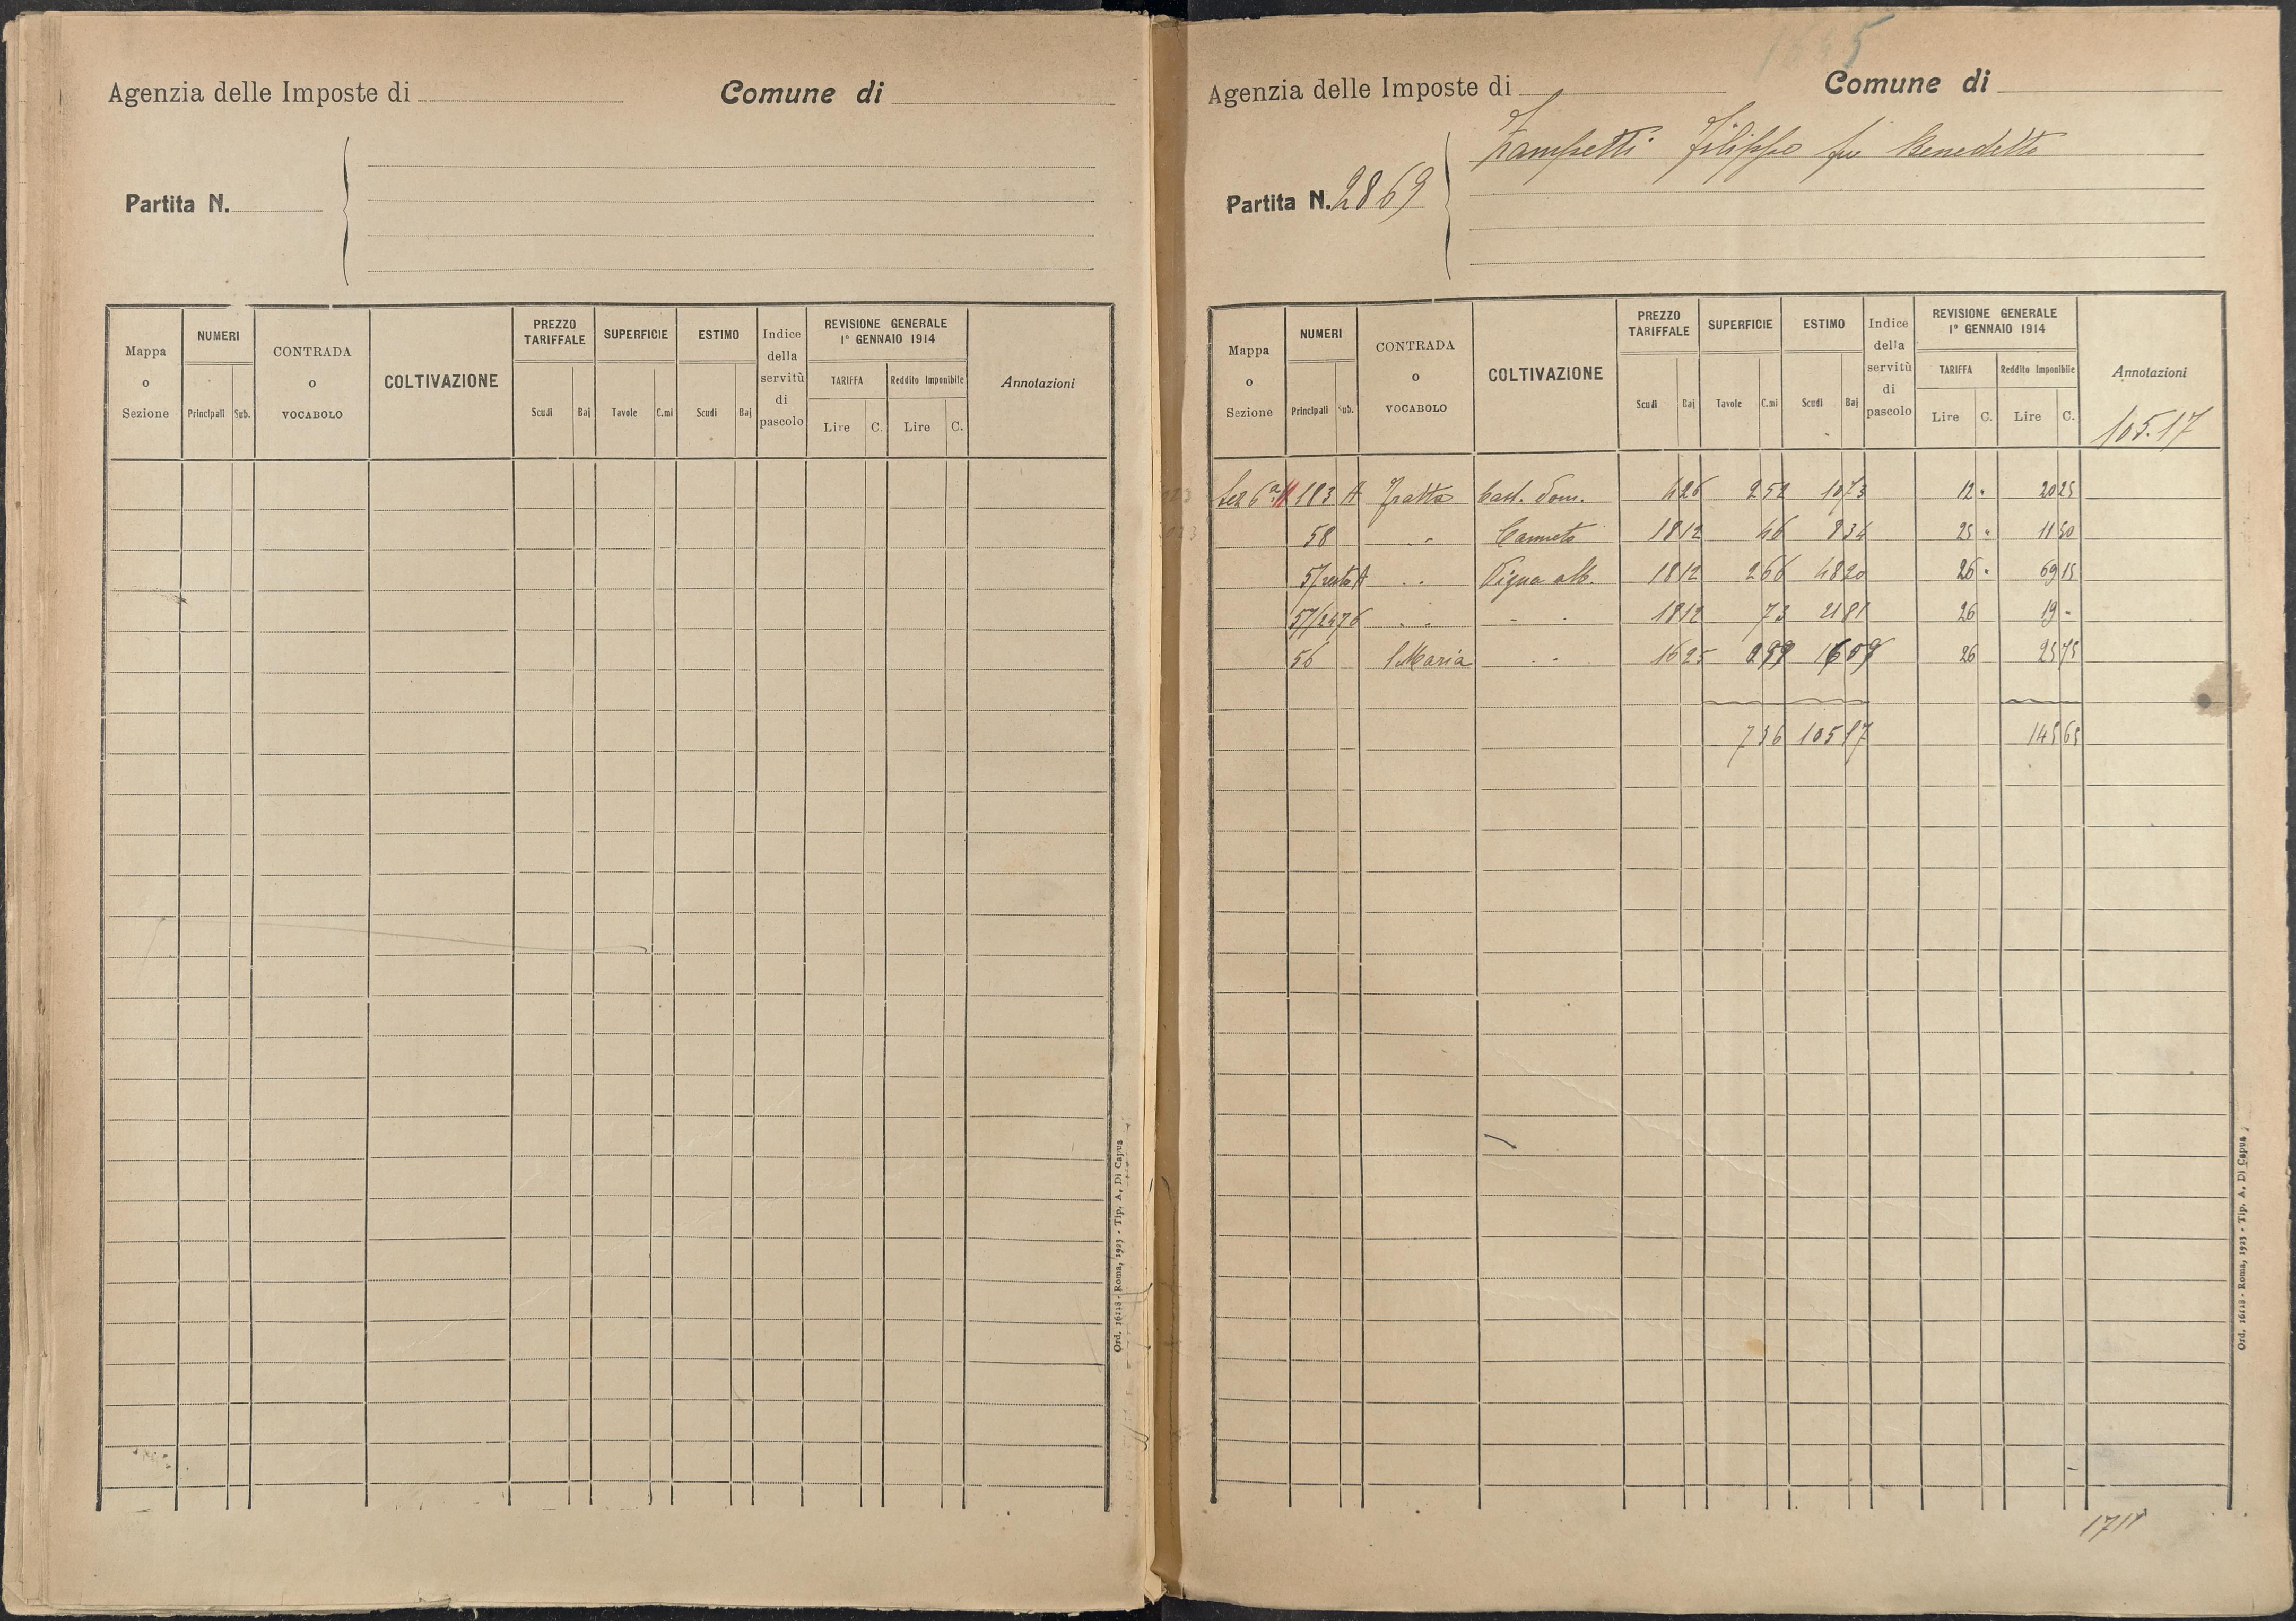 Agenzia delle Imposte di
Comune di
Partita N.
Mappa o Sezione
NUMERI
Principali Sub.
CONTRADA o VOCABOLO
COLTIVAZIONE
PREZZO TARIFFALE
Scudi Baj
SUPERFICIE
Tavole C.mi
ESTIMO
Scudi Baj
Indice della servitù di pascolo
REVISIONE GENERALE
1° GENNAIO 1914
TARIFFA Reddito Imponibile
Lire C. Lire C.
Annotazioni
Ord. 16118 - Roma, 1923 - Tip. A. Di Capua
Agenzia delle Imposte di
Comune di
Partita N. 2869
Zampetti Filippo fu Benedetto
Mappa o Sezione
NUMERI
Principali Sub.
CONTRADA o VOCABOLO
COLTIVAZIONE
PREZZO TARIFFALE
Scudi Baj
SUPERFICIE
Tavole C.mi
ESTIMO
Scudi Baj
Indice della servitù di pascolo
REVISIONE GENERALE
1° GENNAIO 1914
TARIFFA Reddito Imponibile
Lire C. Lire C.
Annotazioni
105.17
Sez 6ª 183 A Fratta Cast. Dom. 4 26 2 52 10 73 12 " 20 25
58 " Canneto 18 12 46 8 34 25 " 11 50
57 resto A " " Vigna alb. 18 12 2 66 48 20 26 " 69 15
57/2476 " " " " 18 12 73 26 19 "
56 S Maria " " 16 25 16 09 26 25 75
7 36 105 17 145 65
Ord. 16118 - Roma, 1923 - Tip. A. Di Capua